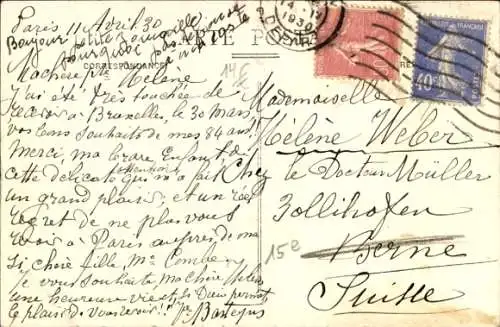 Paris 11 Avril 30
Bonjour petite
pourquoi pas
POST
CORRESPONDANCE
Ma chère pte Hélène
J'ai été très touchée de
recevoir à Bruxelles, le 30 Mars
vos bons souhaits de mes 84 ans!
Merci, ma brave Enfant, de
cette délicate attention qui m'a fait
un grand plaisir; et un réel
regret de ne plus vous
revoir à Paris auprès de ma
si chère fille, Me Combe.
Je vous souhaite, ma chère Hélène
une heureuse vie et si Dieu permet
le plaisir de vous revoir!
14 IV
1930
40c
Mademoiselle
Hélène Weber
Chez le Docteur Müller
Zollikofen
Berne
Suisse
15e